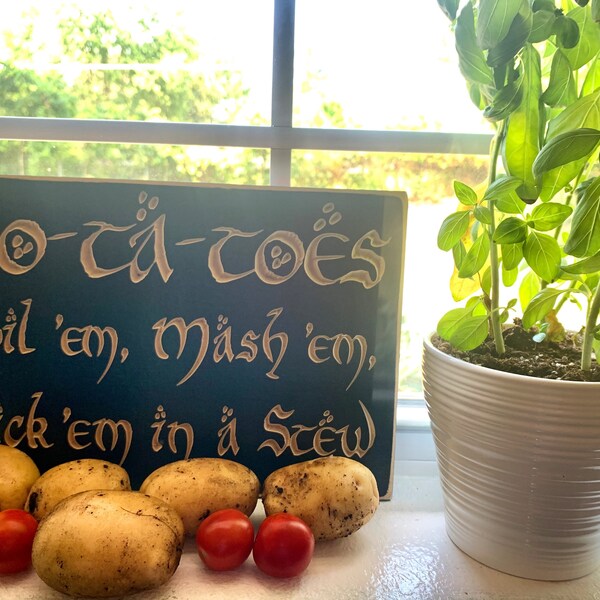 O-TA-TOES
oil 'em, Mash 'em,
ick 'em in a Stew